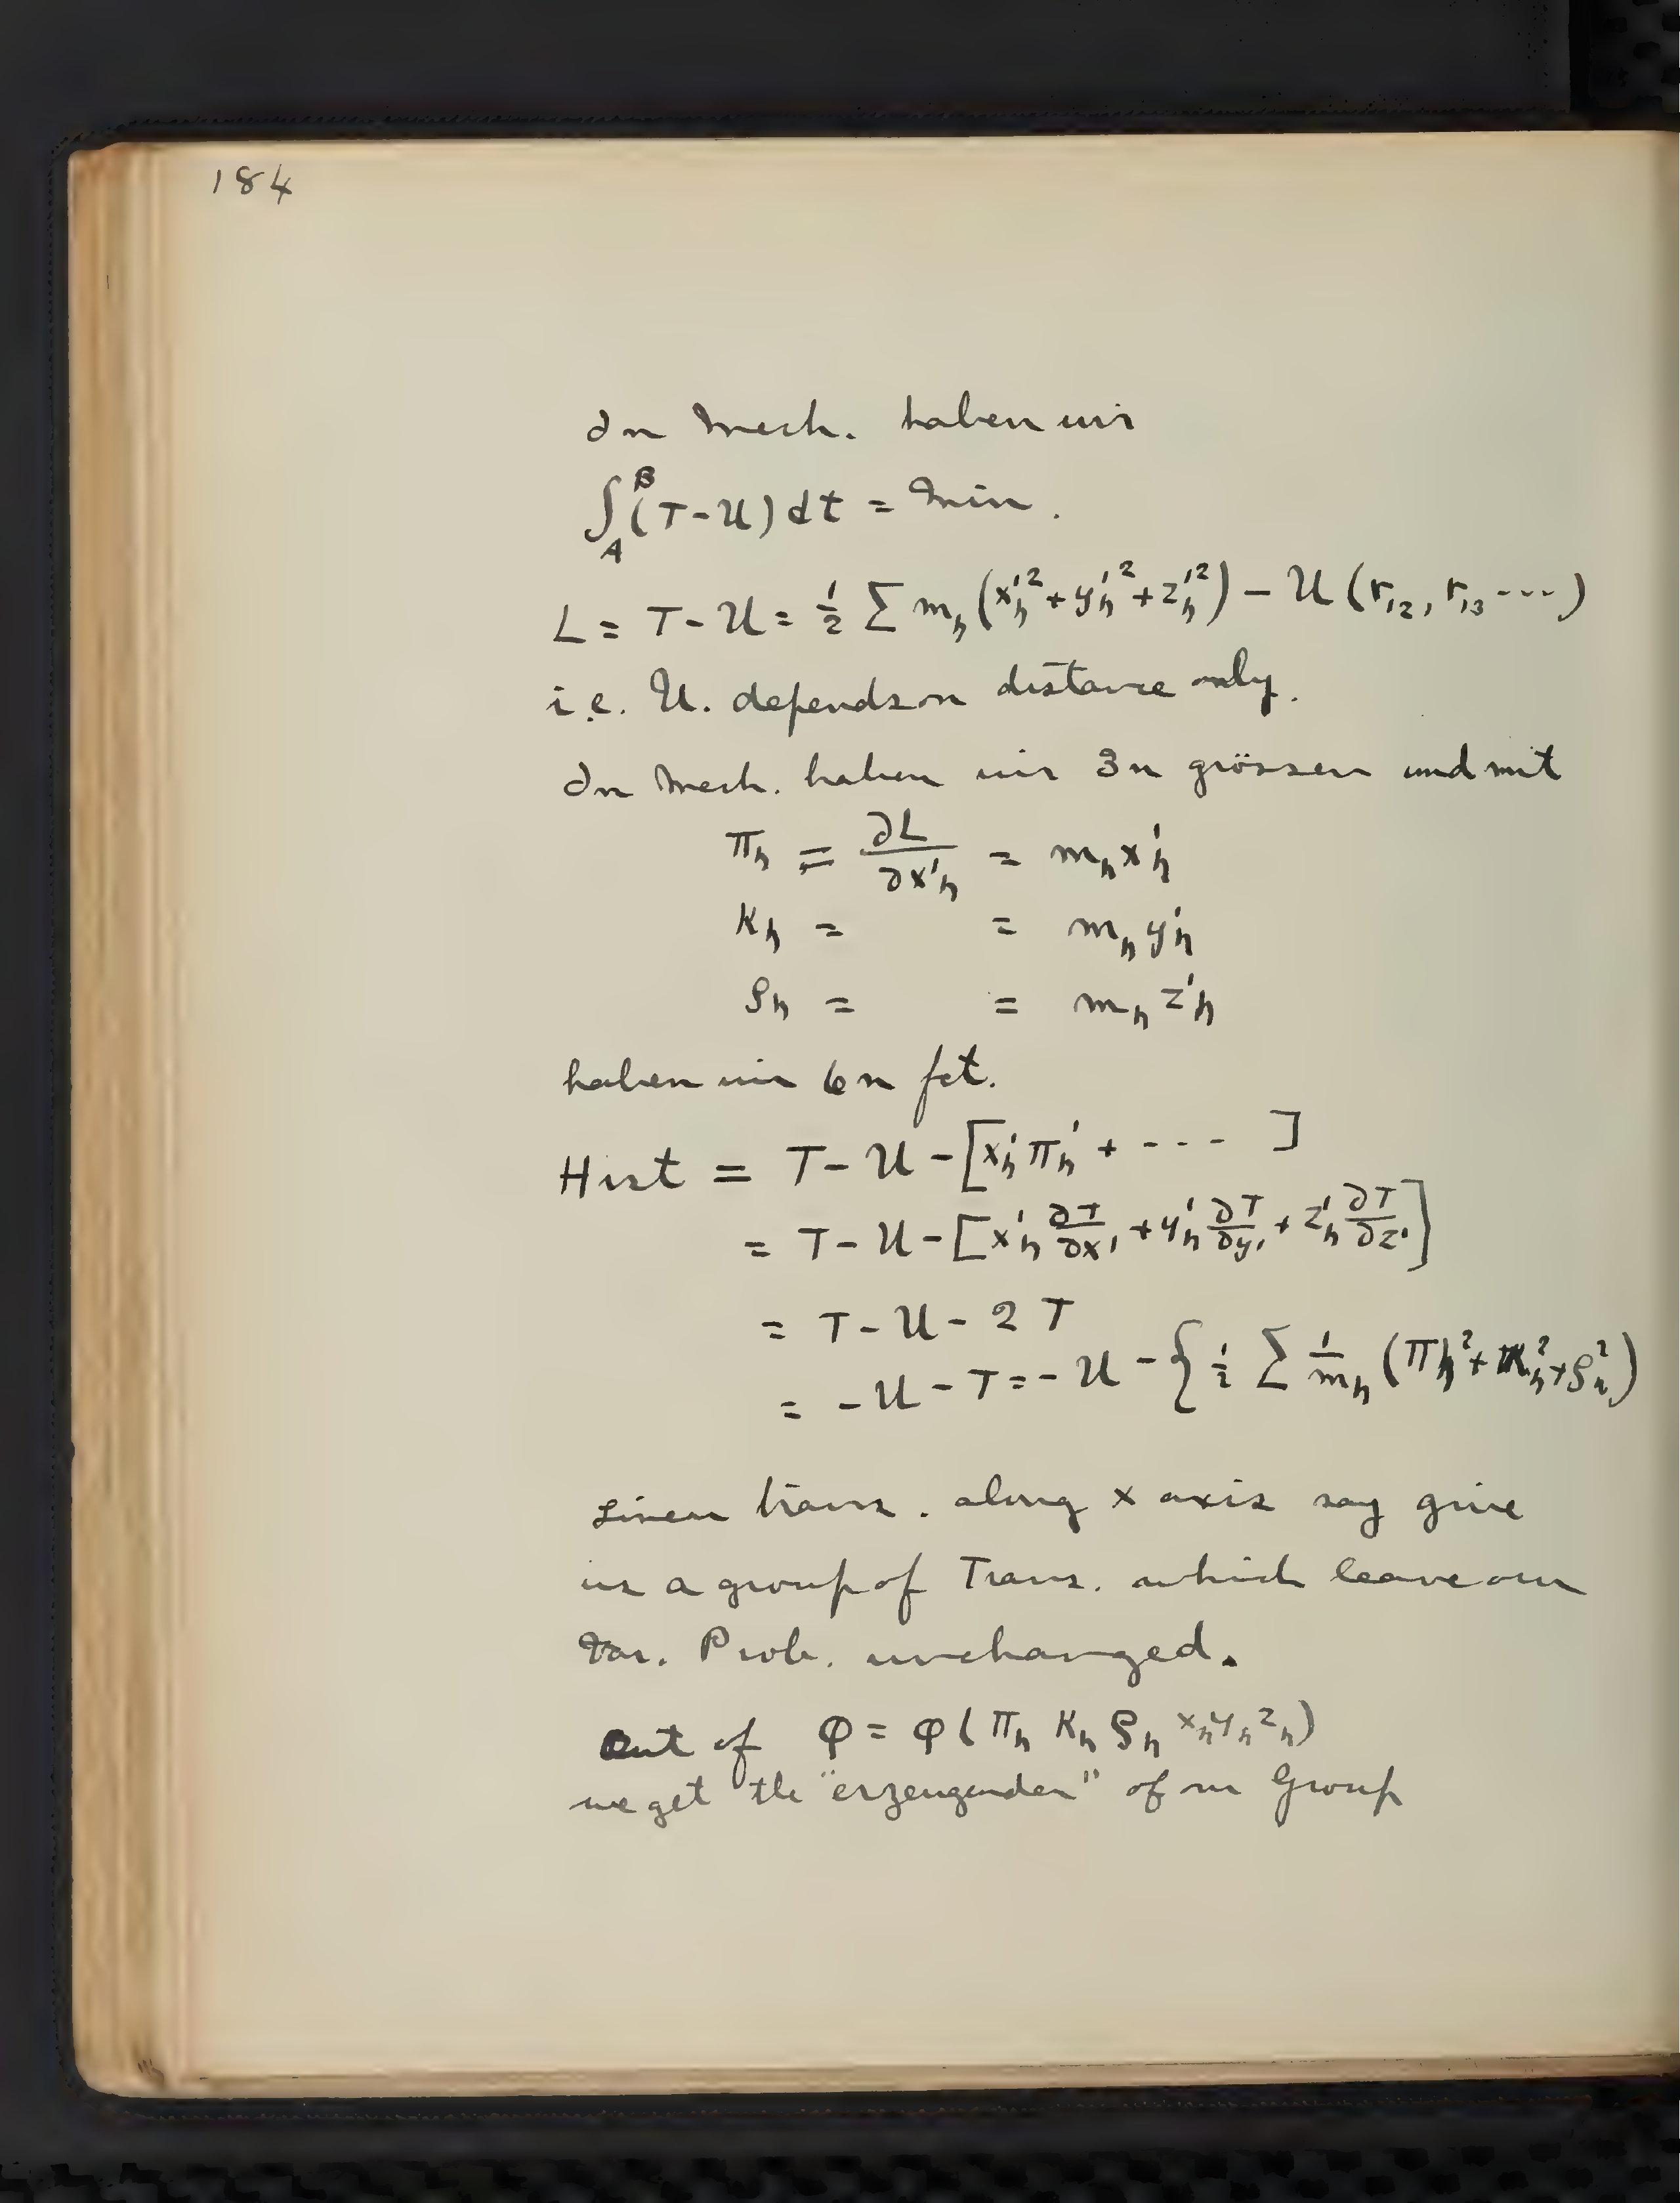 184
In Mech. haben wir
∫_A^B (T-U) dt = Min.
L = T-U = 1/2 Σ m_h (x'_h^2 + y'_h^2 + z'_h^2) - U (r_12, r_13 ---)
i.e. U. depends on distance only.
In Mech. haben wir 3n grössen und mit
π_h = ∂L/∂x'_h = m_h x'_h
κ_h = = m_h y'_h
ρ_h = = m_h z'_h
haben wir 6n fct.
H ist = T-U-[x'_h π'_h + --- ]
= T-U-[x'_h ∂T/∂x' + y'_h ∂T/∂y' + z'_h ∂T/∂z']
= T-U-2T
= -U-T = -U-{1/2 Σ 1/m_h (π_h^2 + κ_h^2 + ρ_h^2)
Linear trans. along x axis say give
us a group of Trans. which leave our
Var. Prob. unchanged.
Out of φ = φ(π_h κ_h ρ_h x_h y_h z_h)
we get the "erzeugenden" of our Group